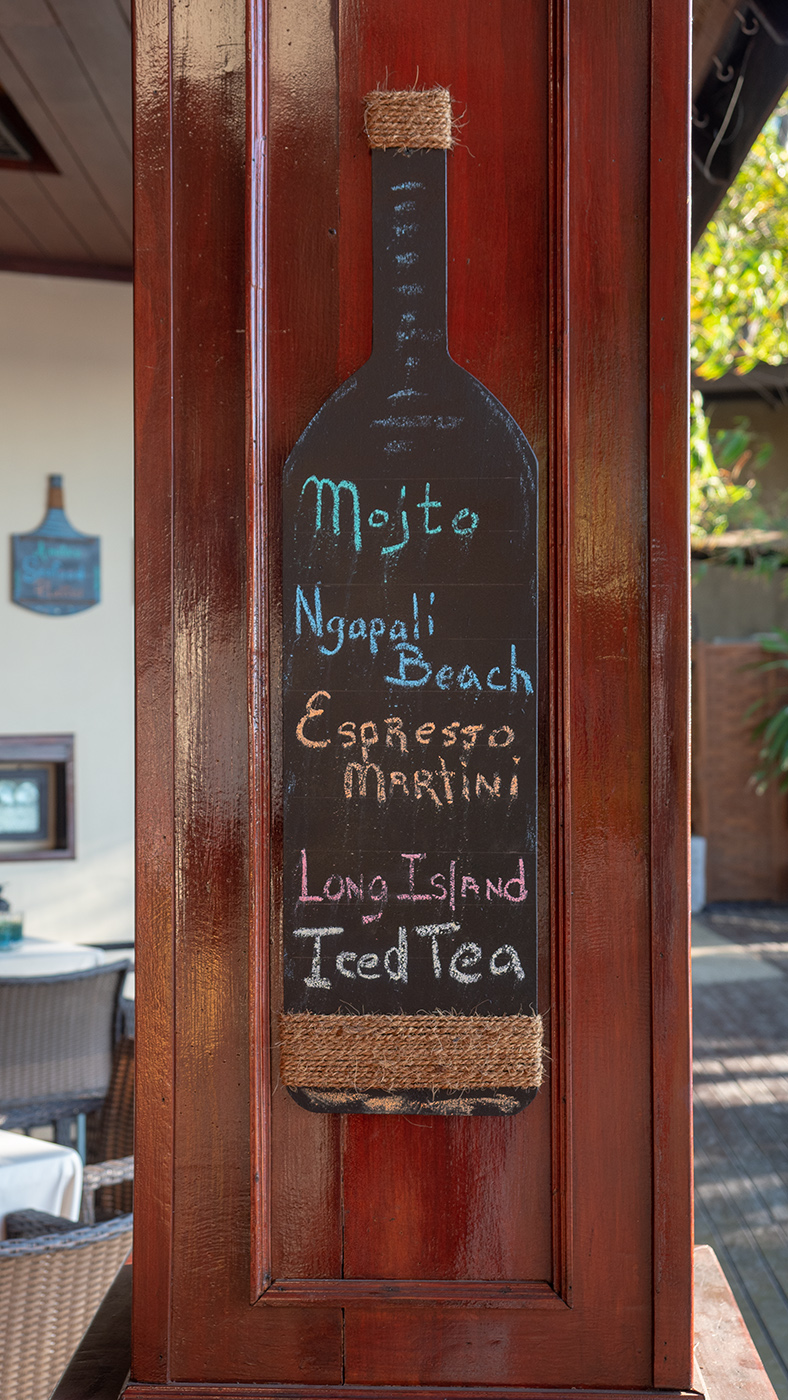 Mojto
Ngapali
Beach
Espresso
MARTiNi
Long Island
Iced Tea